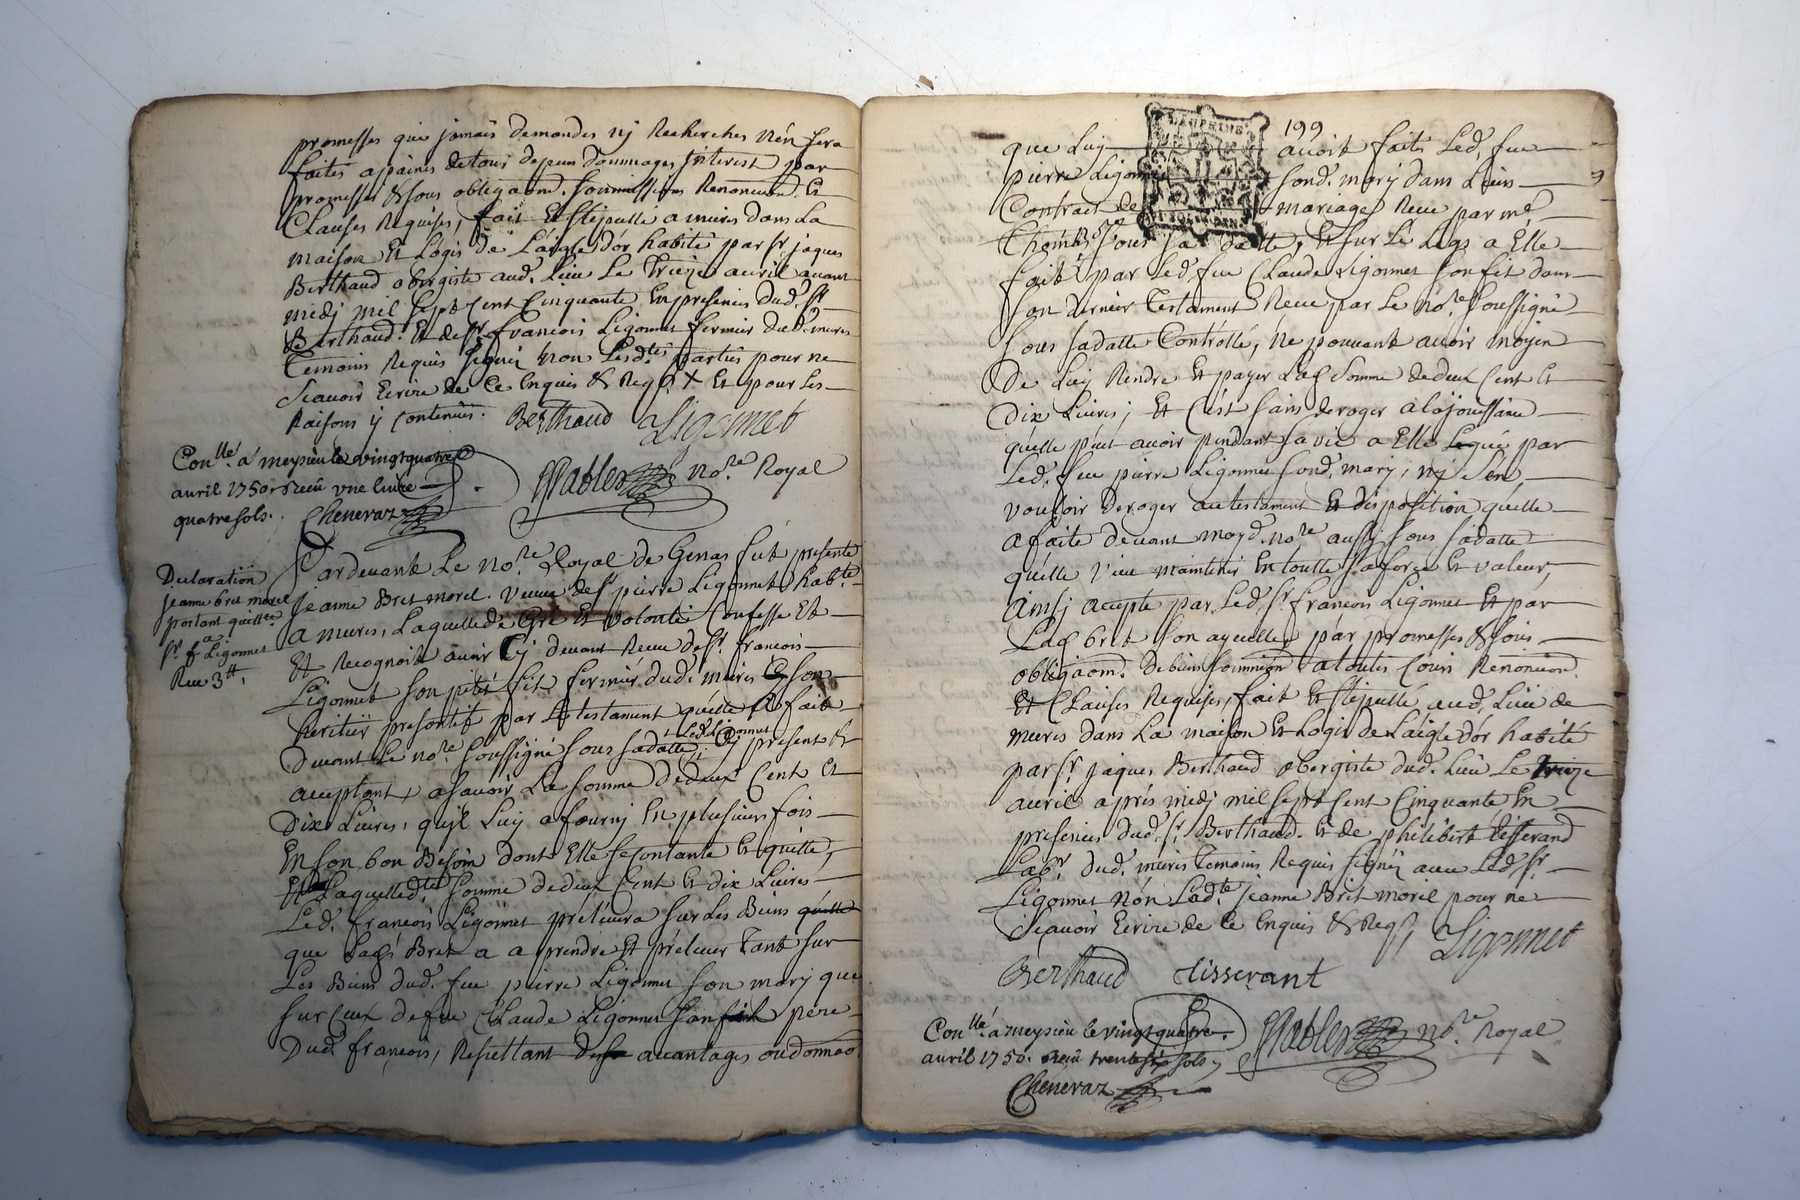 promesses que jamais demandes nj Recherches n'en sera
faites a peines de tous depens dommages Interest par
promesses & sous obligaõns. soumissions Renonciaõn. Et
Clauses Requises, fait Et stipullé a mures dans La
maison Et Logis de L'aigle d'or habité par sr. jaques
Berthaud obergiste aud. lieu Le Treize auril auant
midj mil sept Cent Cinquante En presence dud. sr.
Berthaud. Et de sr. francois Ligonnet fermier dud. mures
Temoins Requis signés non Lesdtes. parties pour ne
scauoir Ecrire de Ce Enquis & Reqs. X Et pour Les
Raisons ÿ contenues. Berthaud Ligonnet
Conllé. á meysieu le vingt quatre
auril 1750. Receu vne liure
quatre sols. Cheneraz
nore. Royal
Declaration
jeanne bret morel
portant quittce.
a
sr. f Ligonnet
Rec 3tt.
Pardeuant Le nore. Royal de Genas fut presente
jeanne Bret morel. veuue de sr. pierre Ligonnet habte.
a mures, Laquelle de Gré Et volonté Confesse Et
Et Recognoit auoir Cy deuant Receu de sr. francois
Ligonnet son petit fils fermier dud. mures Et son
heritier presontif par Le testament quelle a fait
Led. Ligonnet
deuant Le nore. soussigné sous sa datte, Cy present &
acceptant, a scauoir La somme de deux Cent Et
Dix Liures, qu'jl Luy a fourny En plusieurs fois
En son bon Besoin dont Elle se contante Et quitte,
Laquelle dte. somme de deux Cent Et dix Liures
Led. francois Ligonnet préleuera sur Les Biens quelle
que Lade. Bret a a prendre Et préleuer Tant sur
Les Biens dud. feu pierre Ligonnet son mary que
sur Ceux de feu Claude Ligonnet son fils pere
Dud. francois, Resultant des auantages ou donnaõ.
199
que Luy auoit faits Led. feu
pierre Ligonnet sond. mary dans Leurs
Contract de mariage Receu par me.
sous sa datte, Et sur Le Legs a Elle
fait par Led. feu Claude Ligonnet son fils dans
son dernier Testament Receu par Le nore. soussigné
sous sa datte Controllé, ne pouuant auoir moyen
De Luy Rendre Et payer Lade. somme de deux Cent Et
Dix Liures; Et C'est sans deroger a la jouissance
quelle peut auoir pendant sa vie a Elle Legué par
Led. feu pierre Ligonnet sond. mary, nj s'en
vouloir deroger au testament Et disposition quelle
a faite deuant moyd. nore. aussy sous sa datte
quelle veut maintenir En toutte sa force Et valeur,
ainsj accepté par Led. sr. francois Ligonnet Et par
Lade. bret son ayeulle, par promesses & sous
obligaõns. de biens soumission a toutes Cours Renonciaõn.
Et Clauses Requises, fait Et stipullé aud. Lieu de
mures dans La maison Et Logis de L'aigle d'or habité
par sr. jaques Berthaud obergiste dud. Lieu Le treize
auril aprés midj mil sept Cent Cinquante En
presence dud. sr. Berthaud. Et de philibert tisserand
Labr. dud. mures Temoins Requis signés auec Led. sr.
Ligonnet nón Ladte. jeanne Bret morel pour ne
scauoir Ecrire de Ce Enquis & Reqs. Ligonnet
Berthaud tisserant
Conllé. á meysieu le vingt quatre
auril 1750. receu trente six sols.
nore. Royal
Cheneraz